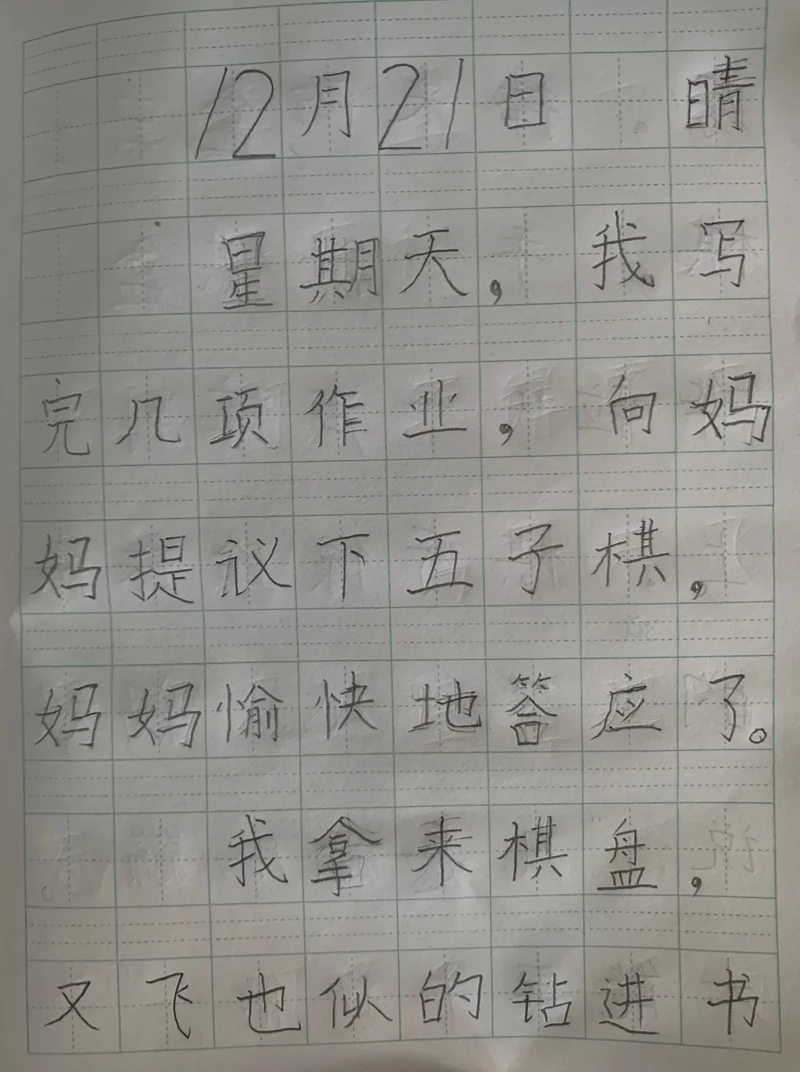 12月21日 晴
星期天，我写
完几项作业，向妈
妈提议下五子棋，
妈妈愉快地答应了。
我拿来棋盘，
又飞也似的钻进书